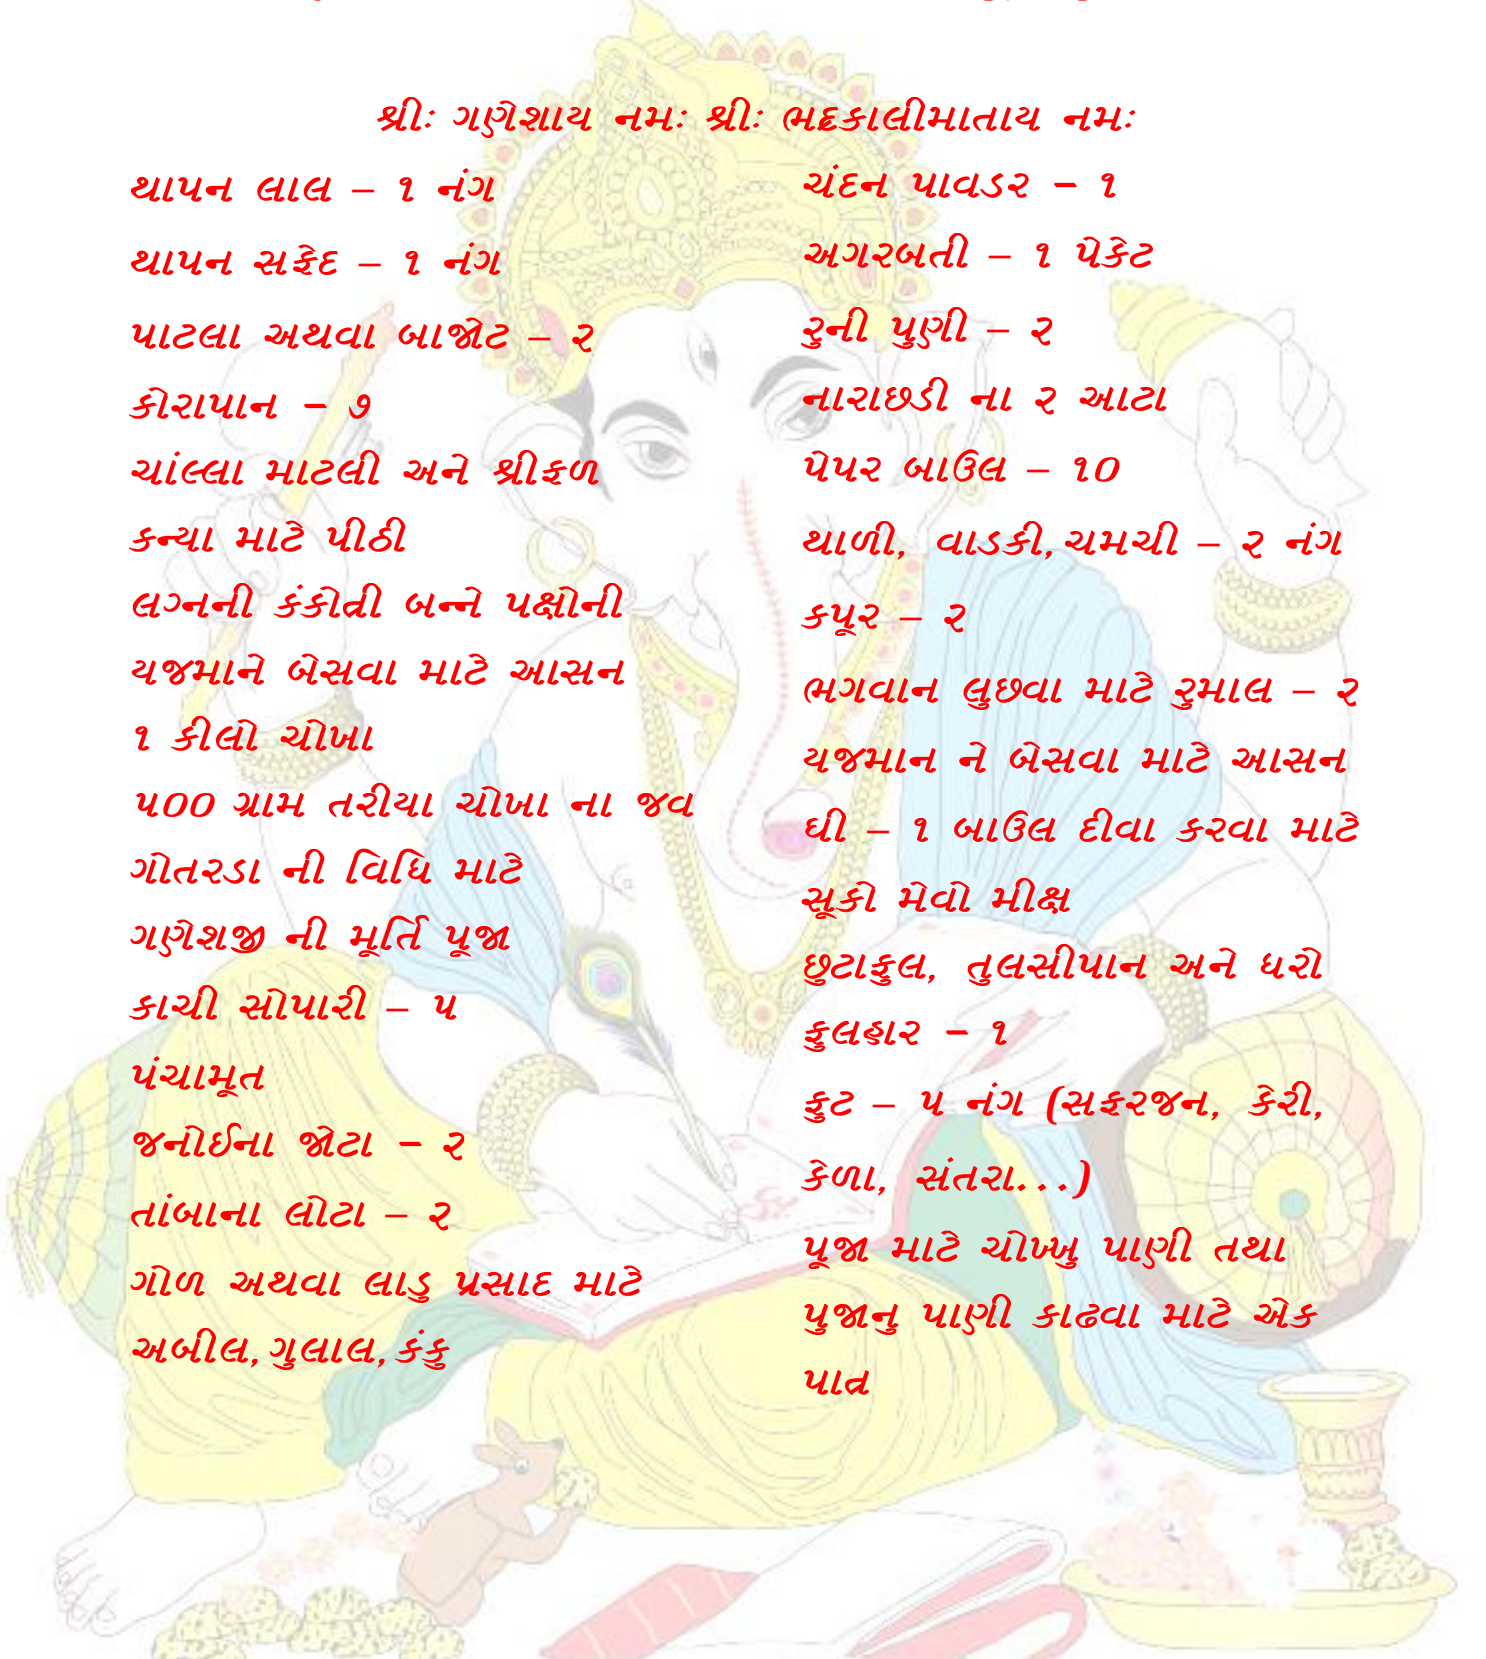 શ્રીઃ ગણેશાય નમઃ શ્રીઃ ભદ્રકાલીમાતાય નમઃ
થાપન લાલ – ૧ નંગ
થાપન સફેદ – ૧ નંગ
પાટલા અથવા બાજોટ – ૨
કોરાપાન – ૭
ચાંલ્લા માટલી અને શ્રીફળ
કન્યા માટે પીઠી
લગ્નની કંકોત્રી બન્ને પક્ષોની
યજમાને બેસવા માટે આસન
૧ કીલો ચોખા
૫૦૦ ગ્રામ તરીયા ચોખા ના જવ
ગોતરડા ની વિધિ માટે
ગણેશજી ની મૂર્તિ પૂજા
કાચી સોપારી – ૫
પંચામૂત
જનોઈના જોટા – ૨
તાંબાના લોટા – ૨
ગોળ અથવા લાડુ પ્રસાદ માટે
અબીલ, ગુલાલ, કંકુ
ચંદન પાવડર – ૧
અગરબતી – ૧ પેકેટ
રુની પુણી – ૨
નારાછડી ના ૨ આટા
પેપર બાઉલ – ૧૦
થાળી, વાડકી, ચમચી – ૨ નંગ
કપૂર – ૨
ભગવાન લુછવા માટે રુમાલ – ૨
યજમાન ને બેસવા માટે આસન
ઘી – ૧ બાઉલ દીવા કરવા માટે
સૂકો મેવો મીક્ષ
છુટાફુલ, તુલસીપાન અને ધરો
ફુલહાર – ૧
ફુટ – ૫ નંગ (સફરજન, કેરી,
કેળા, સંતરા...)
પૂજા માટે ચોખ્ખુ પાણી તથા
પુજાનુ પાણી કાઢવા માટે એક
પાત્ર